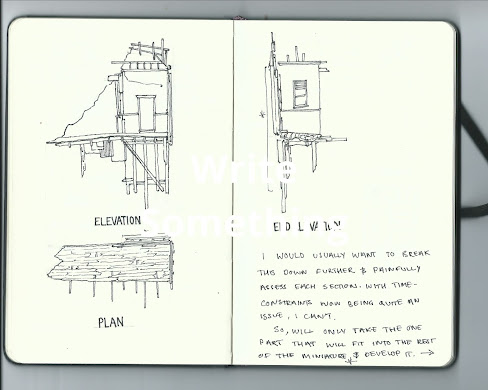 ELEVATION
PLAN
Write
Something
I WOULD USUALLY WANT TO BREAK
THIS DOWN FURTHER & PAINFULLY
ASSESS EACH SECTION. WITH TIME-
CONSTRAINTS NOW BEING QUITE AN
ISSUE, I CAN'T.
SO, WILL ONLY TAKE THE ONE
PART THAT WILL FIT INTO THE REST
OF THE MINIATURE, & DEVELOP IT. →